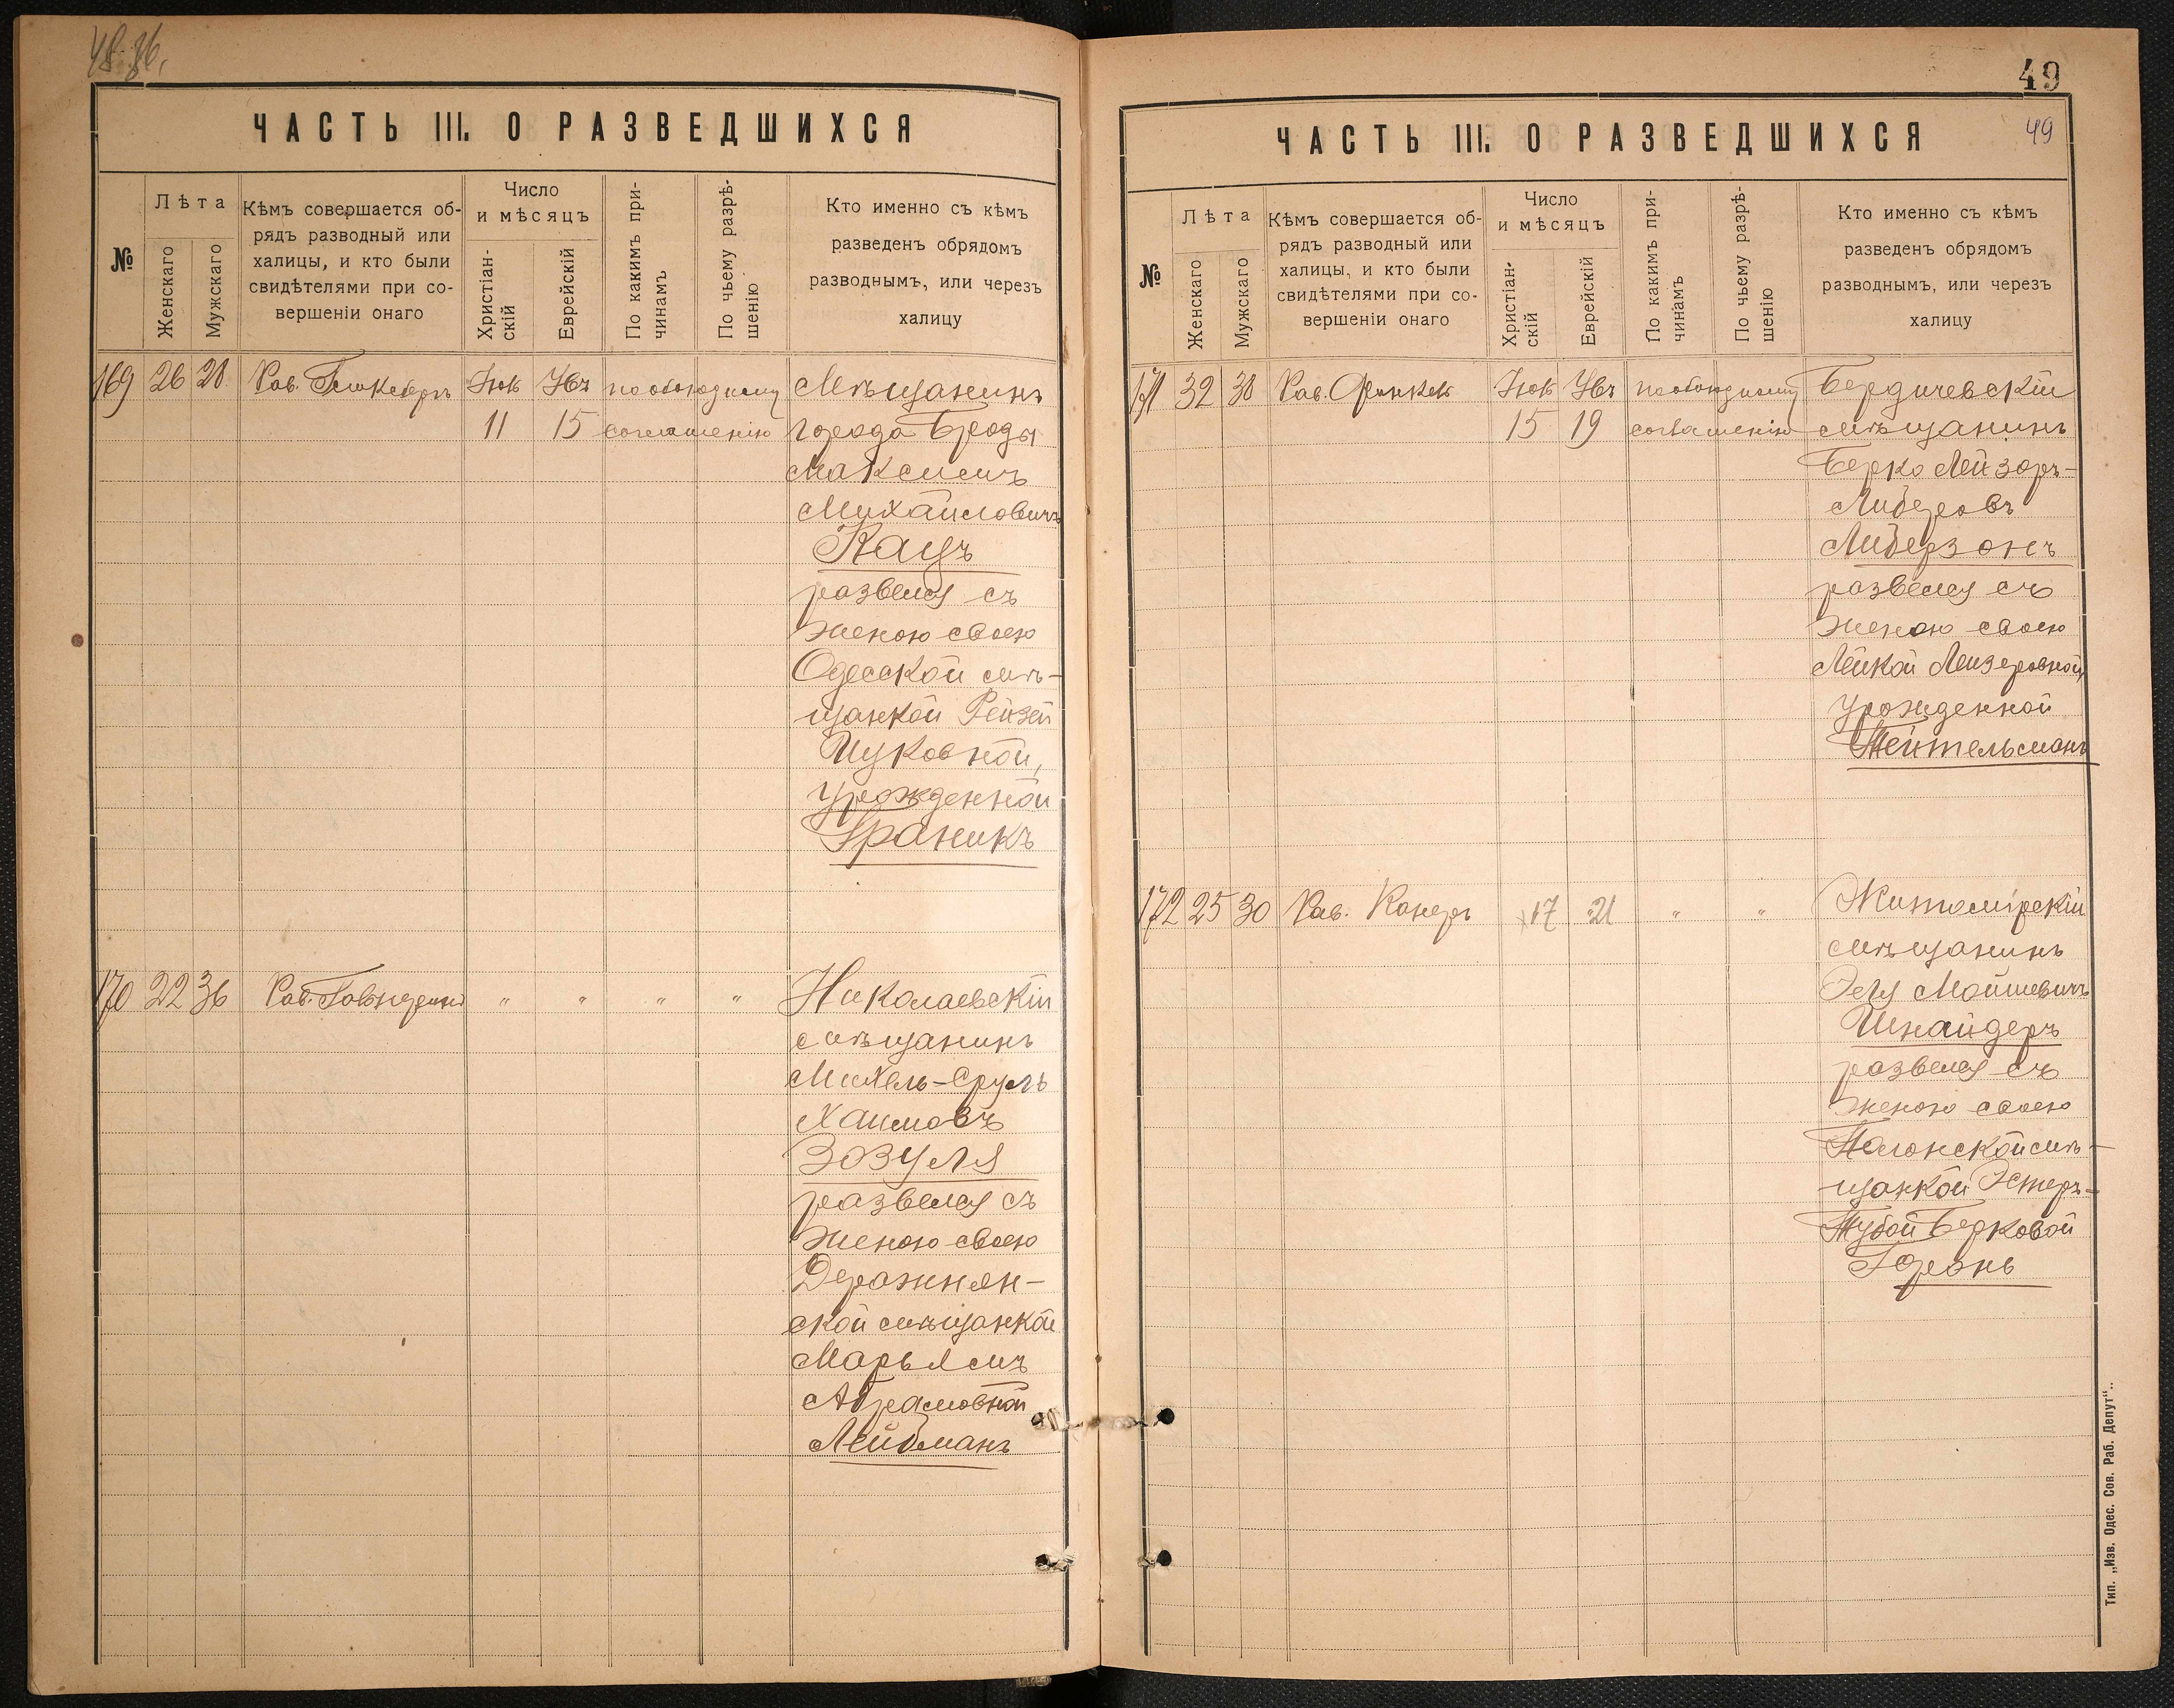 48 об.
ЧАСТЬ III. О РАЗВЕДШИХСЯ
№
Лѣта
Женскаго
Мужскаго
Кѣмъ совершается об-
рядъ разводный или
халицы, и кто были
свидѣтелями при со-
вершеніи онаго
Число
и мѣсяцъ
Христіан-
скій
Еврейскій
По какимъ при-
чинамъ
По чьему разрѣ-
шенію
Кто именно съ кѣмъ
разведенъ обрядомъ
разводнымъ, или черезъ
халицу
169 26 28 Рав. Іюль Авъ по обоюдному Мѣщанинъ
11 15 соглашенію города Броды
Максимъ
Михайловичъ
Кацъ
развелся съ
женою своею
Одесской мѣ-
щанкой Рейзей
Ицковной,
урожденной
Граникъ
170 22 36 Рав. " " " " Николаевскій
мѣщанинъ
Михель-Сруль
Хаимовъ
Зозуля
развелся съ
женою своею
Деражнян-
ской мѣщанкой
Марьямъ
Абрамовной
Лейбманъ
49
49
ЧАСТЬ III. О РАЗВЕДШИХСЯ
№
Лѣта
Женскаго
Мужскаго
Кѣмъ совершается об-
рядъ разводный или
халицы, и кто были
свидѣтелями при со-
вершеніи онаго
Число
и мѣсяцъ
Христіан-
скій
Еврейскій
По какимъ при-
чинамъ
По чьему разрѣ-
шенію
Кто именно съ кѣмъ
разведенъ обрядомъ
разводнымъ, или черезъ
халицу
171 32 38 Рав. Финкель Іюль Авъ по обоюдному Бердичевскій
15 19 соглашенію мѣщанинъ
Берко Лейзоръ-
Либеровъ
Либерзонъ
развелся съ
женою своею
Лейкой Лейзеровной,
урожденной
Тейтельманъ
172 25 30 Рав. Канеръ 17 21 " " Житомірскій
мѣщанинъ
Эля Мойшевичъ
Шнайдеръ
развелся съ
женою своею
Полонской мѣ-
щанкой Эстеръ-
Тубой Берковой
Горенъ
Тип. „Изв. Одес. Сов. Раб. Депут“..